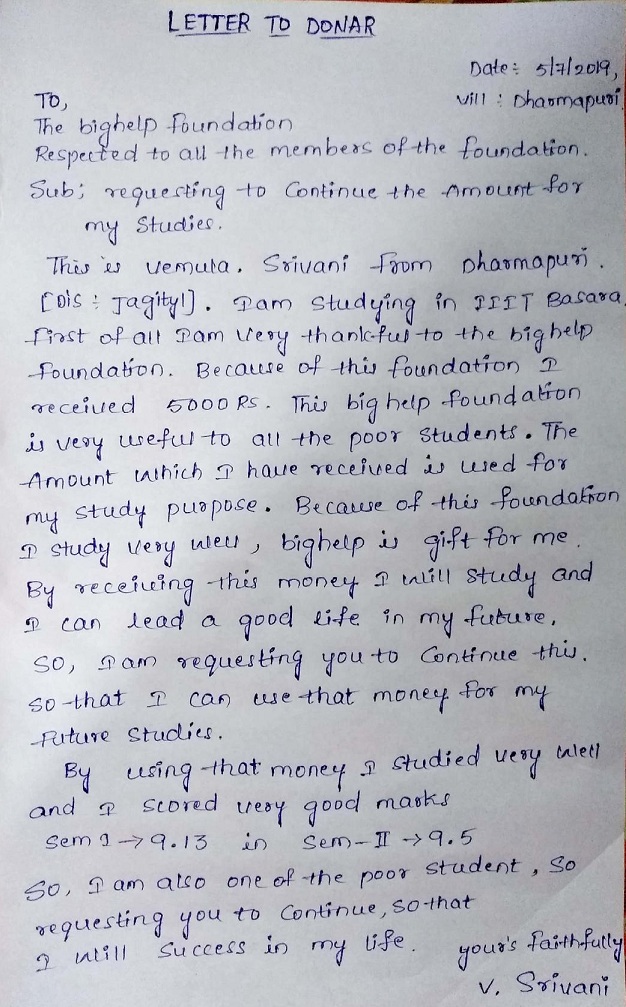 LETTER TO DONAR
Date: 5/7/2019,
Vill : Dharmapuri
TO,
The bighelp foundation
Respected to all the members of the foundation.
Sub; requesting to Continue the Amount for
my Studies.
This is vemula. Srivani from Dharmapuri.
[Dis : Jagityl]. I am Studying in IIIT Basara.
first of all I am very thankful to the bighelp
foundation. Because of this foundation I
received 5000 RS. This big help foundation
is very useful to all the poor Students. The
Amount which I have received is used for
my study purpose. Because of this foundation
I study very well, bighelp is gift for me.
By receiving this money I will study and
I can lead a good life in my future,
SO, I am requesting you to Continue this.
so that I can use that money for my
future Studies.
By using that money I studied very well
and I scored very good marks
Sem I → 9.13 in Sem-II → 9.5
So, I am also one of the poor student, So
requesting you to Continue, so that
I will success in my life. your's faithfully
V. Srivani